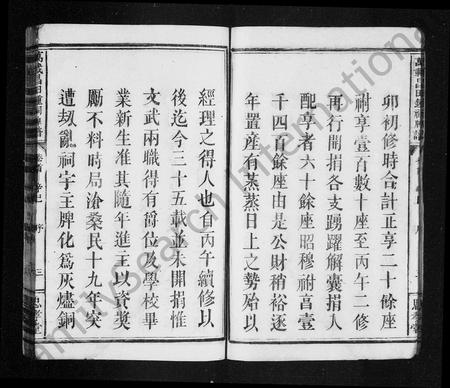 卯初修時合計正享二十餘座
祔享壹百數十座至丙午二修
再行開捐各支踴躍解囊捐入
配享者六十餘座昭穆祔享壹
千四百餘座由是公財稍裕逐
年置産有蒸蒸日上之勢殆以
經理之得人也自丙午續修以
後迄今二十五載並未開捐惟
文武兩職得有爵位及學校畢
業新生准其隨年進主以資奬
勵不料時局滄桑民十九年突
遭刼亂祠宇王牌化爲灰燼銅
序
三
思孝堂
FamilySearch International